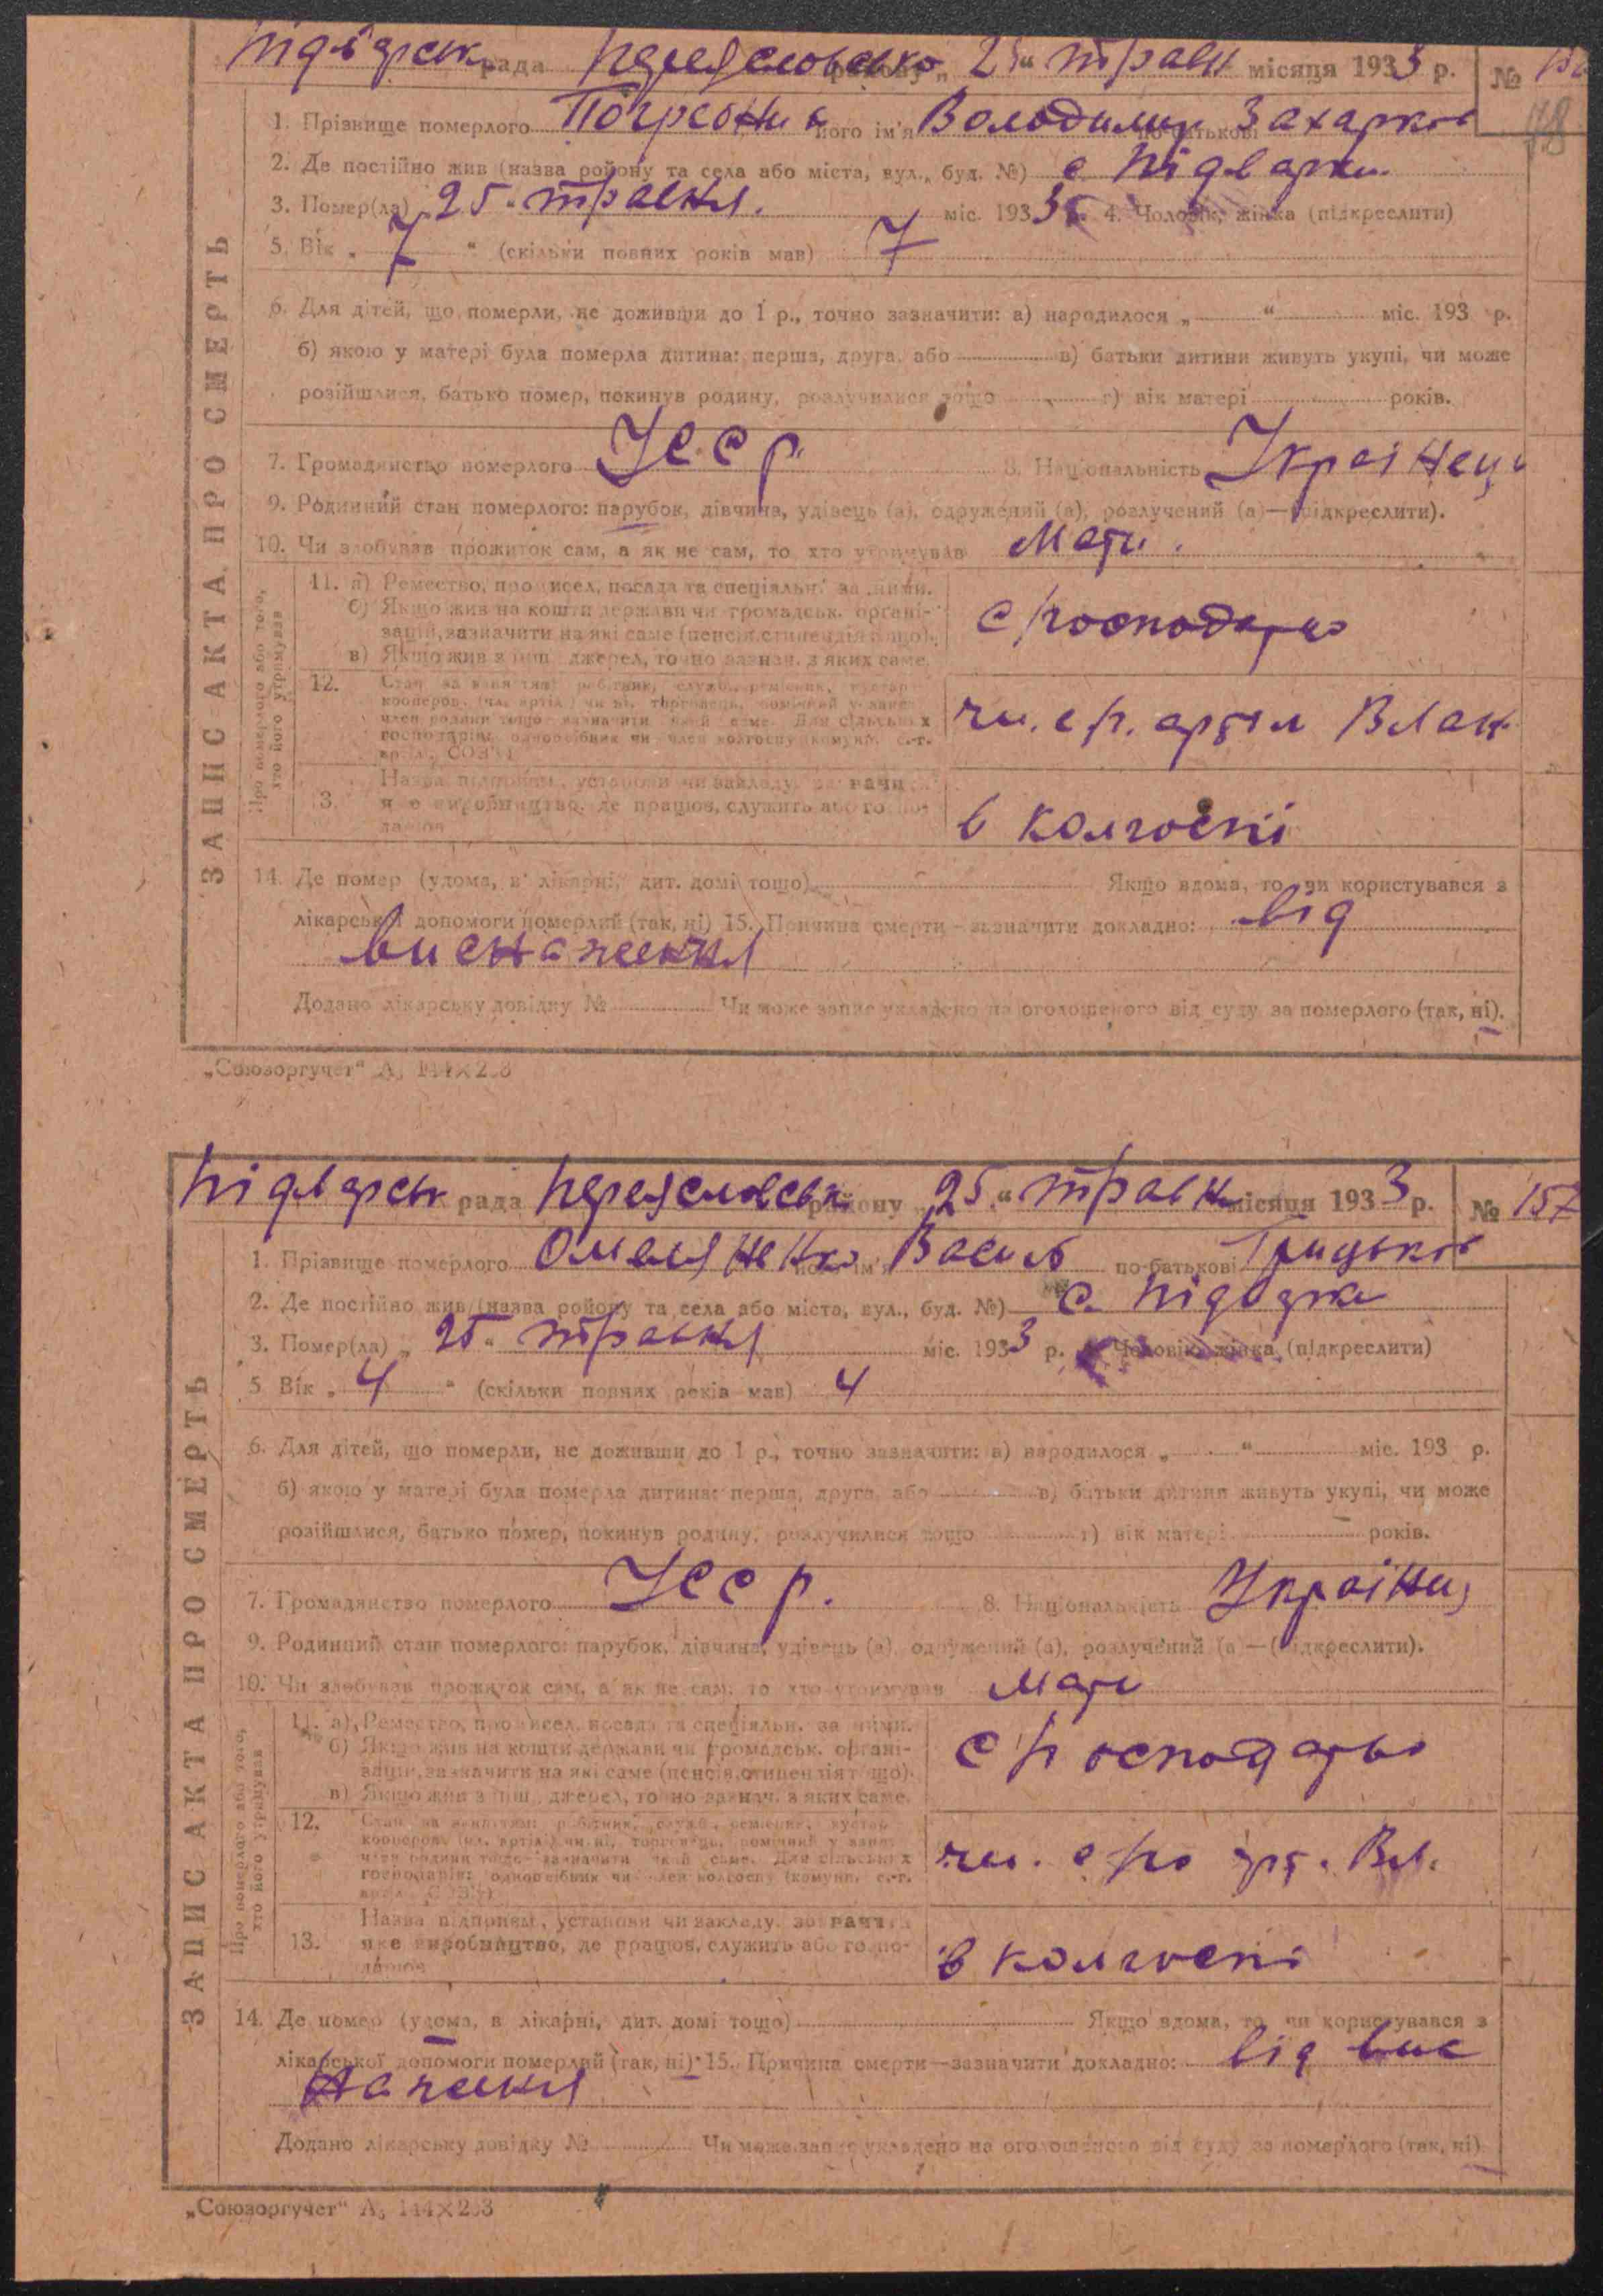 Підварськ рада Переяславсько району „25“ травн місяця 1933 р. №
1. Прізвище померлого Погребни к його ім'я Володимир по батькові Захарков
78
2. Де постійно жив (назва району та села або міста, вул., буд. №) с Підварки
3. Помер(ла) „25“ травня міс. 1933 р. 4. Чоловік, жінка (підкреслити)
5. Вік „ 7 “ (скільки повних років мав) 7
6. Для дітей, що померли, не доживши до 1 р., точно зазначити: а) народилося „ “ міс. 193 р.
б) якою у матері була померла дитина: перша, друга, або в) батьки дитини живуть укупі, чи може
розійшлися, батько помер, покинув родину, розлучилися тощо г) вік матері років.
7. Громадянство померлого Усср. 8. Національність Українець
9. Родинний стан померлого: парубок, дівчина, удівець (а), одружений (а), розлучений (а)—(підкреслити).
10. Чи здобував прожиток сам, а як не сам, то хто утримував Мати.
ЗАПИС АКТА ПРО СМЕРТЬ
Про померлого або того, хто його утримував
11. а) Ремество, промисел, посада та спеціяльн. за ними.
б) Якщо жив на кошти держави чи громадськ. органі-
зацій, зазначити на які саме (пенсія, стипендія тощо).
в) Якщо жив з інш. джерел, точно зазнач. з яких саме.
с господарко
12. Стан за заняттям: робітник, службов. ремісник, кустар
кооперов. (чл. артіл.) чи ні, торговець,
член родини тощо—зазначити який саме. Для сільських
господарів: одноосібник чи член колгоспу (комуни, с.-г.
чл. с г. артіл
13. Назва підприєм., установи чи закладу, зазначи
яке виробництво, де працюв, служить або госпо-
в колгоспі
14. Де помер (удома, в лікарні, дит. домі тощо) Якщо вдома, то чи користувався з
лікарської допомоги померлий (так, ні) 15. Причина смерти—зазначити докладно: від
виснаження
Додано лікарську довідку № Чи може запис укладено на оголошеного від суду за померлого (так, ні).
„Союзоргучет“
Підварськ рада Переяславськ району „25“ травн місяця 1933 р. № 157
1. Прізвище померлого Омеляненко його ім'я Василь по-батькові Грицьков
2. Де постійно жив (назва району та села або міста, вул., буд. №) с. Підварки
3. Помер(ла) „25“ травня міс. 1933 р. 4. Чоловік, жінка (підкреслити)
5 Вік „ 4 “ (скільки повних років мав) 4
6. Для дітей, що померли, не доживши до 1 р., точно зазначити: а) народилося „ “ міс. 193 р.
б) якою у матері була померла дитина: перша, друга, або в) батьки дитини живуть укупі, чи може
розійшлися, батько помер, покинув родину, розлучилися тощо г) вік матері років.
7. Громадянство померлого Усср. 8. Національність Українец
9. Родинний стан померлого: парубок, дівчина, удівець (а), одружений (а), розлучений (а)—(підкреслити).
10. Чи здобував прожиток сам, а як не сам, то хто утримував мати
ЗАПИС АКТА ПРО СМЕРТЬ
Про померлого або того, хто його утримував
11. а) Ремество, промисел, посада та спеціяльн. за ними.
б) Якщо жив на кошти держави чи громадськ. органі-
зацій, зазначити на які саме (пенсія, стипендія тощо).
в) Якщо жив з інш. джерел, точно зазнач. з яких саме.
с господарко
12. Стан за заняттям: робітник, службов. ремісник, кустар
кооперов. (чл. артіл.) чи ні, торговець,
член родини тощо—зазначити який саме. Для сільських
господарів: одноосібник чи член колгоспу (комуни, с.-г.
чл. с го арт. Вл.
13. Назва підприєм., установи чи закладу, зазначи
яке виробництво, де працюв, служить або госпо-
в колгоспі
14. Де помер (удома, в лікарні, дит. домі тощо) Якщо вдома, то чи користувався з
лікарської допомоги померлий (так, ні) 15. Причина смерти—зазначити докладно: від вис
наження
Додано лікарську довідку № Чи може запис укладено на оголошеного від суду за померлого (так, ні)
„Союзоргучет“